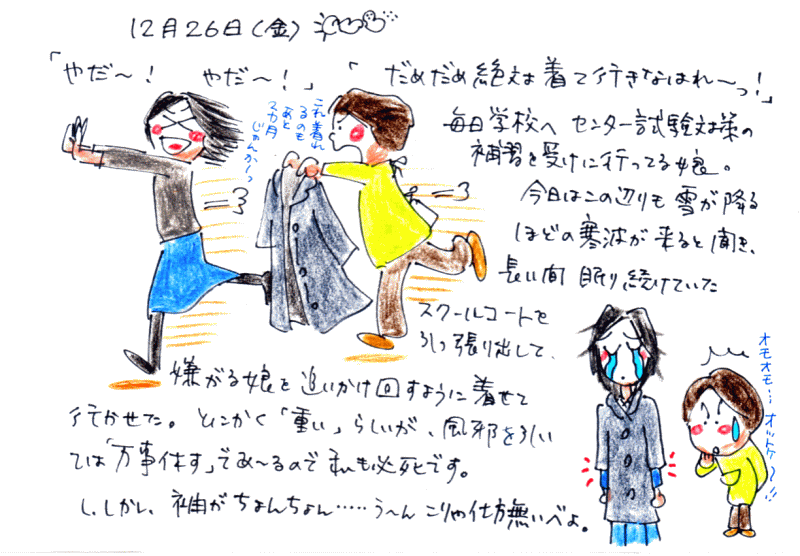 12月26日(金)
「やだ〜! やだ〜!」「だめだめ絶対着て行きなはれ〜っ!」
これ着れ
るのも
あと
2カ月
じゃんかーっ
毎日学校へ センター試験対策の
補習を受けに行ってる娘。
今日はこの辺りも雪が降る
ほどの寒波が来ると聞き、
長い間 眠り続けていた
スクールコートを
引っ張り出して、
嫌がる娘を追いかけ回すように着せて
行かせた。とにかく「重い」らしいが、風邪をひい
ては「万事休す」であ〜るので私も必死です。
し、しかし、袖がちょんちょん……う〜ん こりゃ仕方無いべよ。
オモオモ… オットケ〜!!